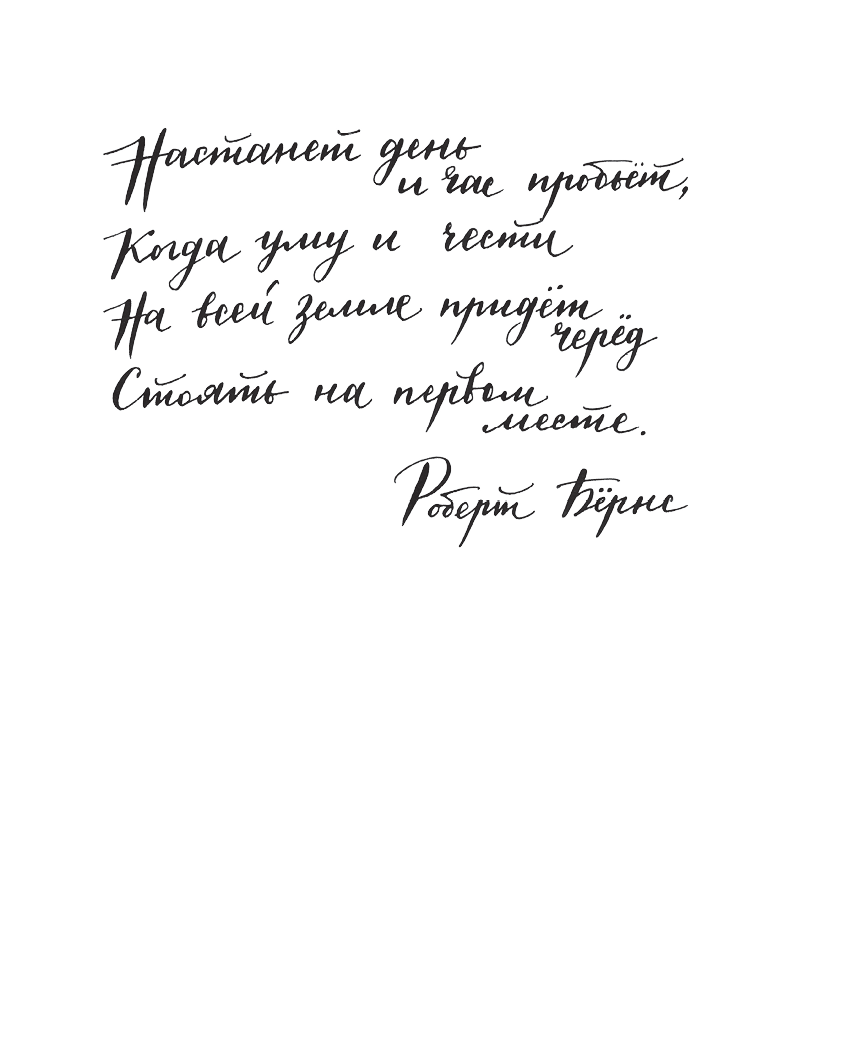 Настанет день
и час пробьёт,
Когда уму и чести
На всей земле придёт
черёд
Стоять на первом
месте.
Роберт Бёрнс